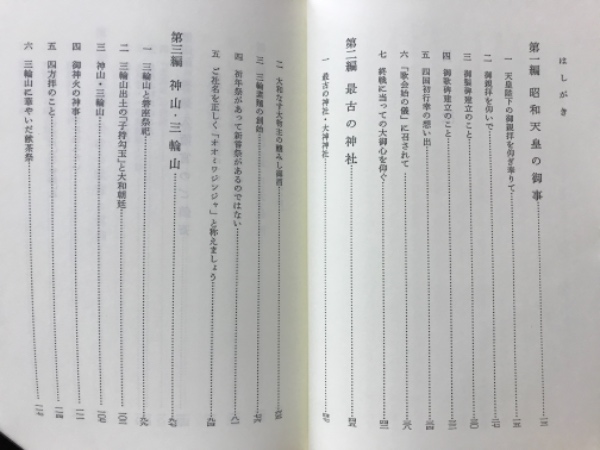 はしがき
第一編 昭和天皇の御事
一 天皇陛下の御親拝を仰ぎ奉りて
二 御親拝を仰いで
三 御製碑建立のこと
四 御歌碑建立のこと
五 四国初行幸の想い出
六 「歌会始の儀」に召されて
七 終戦に当っての大御心を仰ぐ
第二編 最古の神社
一 最古の神社・大神神社
二 大和なす大物主の醸みし神酒
三 三輪素麺の創始
四 祈年祭があって新嘗祭があるのではない
五 ご社名を正しく「オオミワジンジャ」と称えましょう
第三編 神山・三輪山
一 三輪山と磐座祭祀
二 三輪山出土の「子持勾玉」と大和朝廷
三 神山・三輪山
四 御神火の神事
五 四方拝のこと
六 三輪山に華やいだ献茶祭